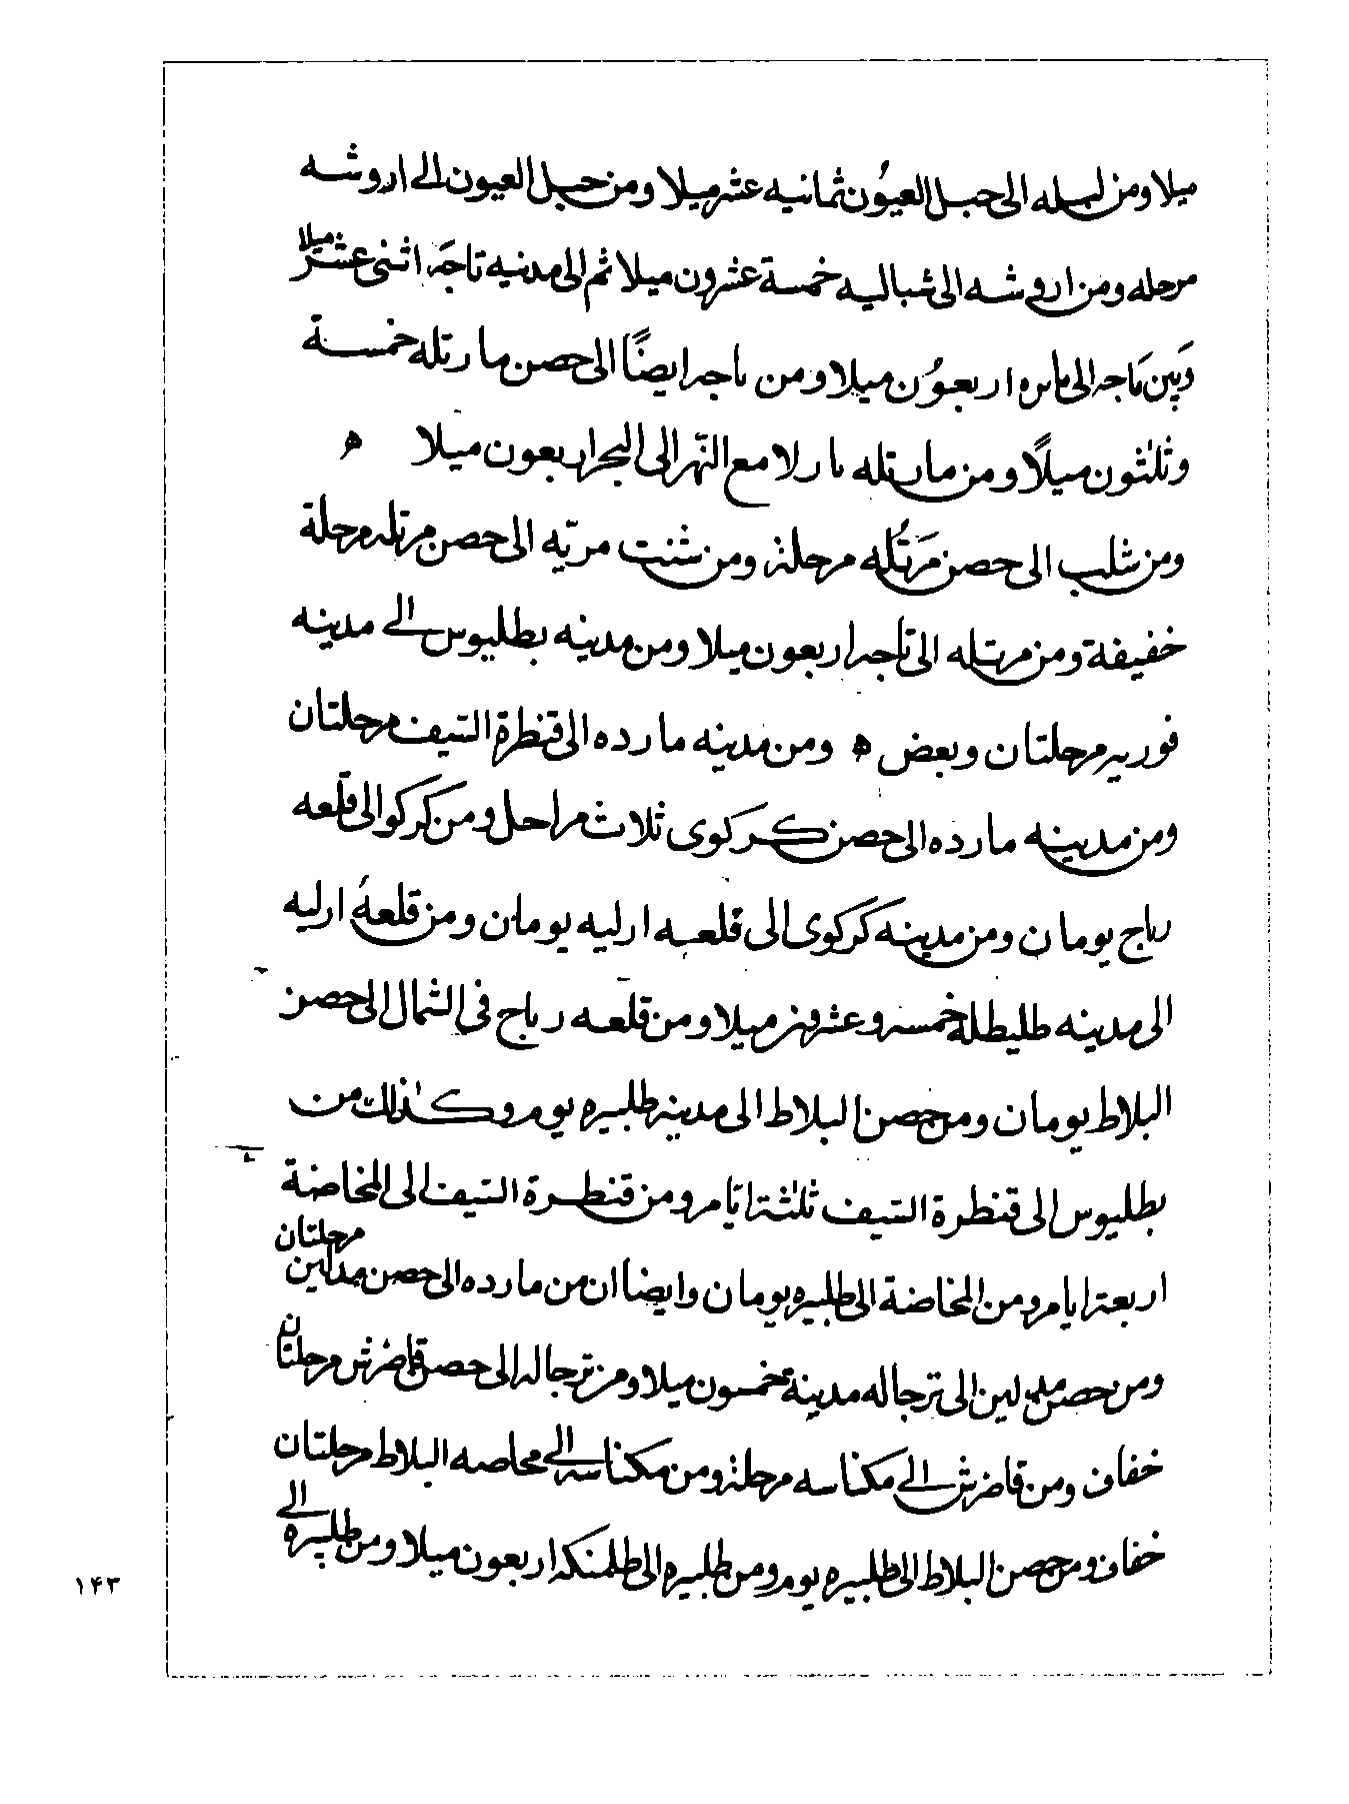 ميلا ومن لبله الى جبل العيُون ثمانيه عشر ميلا ومن جبل العيون الى اروشه
مرحله ومن اروشه الى شباليه خمسة عشرون ميلا ثم الى مدنيه تاجَه اثنى عشر ميلا
وَبين تَاجه الى ىابره اربعوُن ميلا ومن ىاجه ايضًا الى حصن مارتله خمسة
وثلثون ميلًا ومن مارتله ىارلا مع النّهر الى البحر اربعون ميلا ه
ومن شلب الى حصن مَرتُله مرحلة ومن شنت مريّه الى حصن مرتله مرحلة
خفيفة ومن مرتله الى تاجه اربعون ميلا ومن مدينه بطليوس الى مدينه
فوريه مرحلتان وبعض ه ومن مدينه مارده الى قنطرة السّيف مرحلتان
ومن مدينه مارده الى حصن كركوى ثلاث مراحل ومن كركو الى قلعه
رباح يومان ومن مدينه كركوى الى قلعه ارليه يومان ومن قلعهُ ارليه
الى مدينه طليطله خمسه وعشرونه ميلا ومن قلعه رباح فى الشمال الى حصن
البلاط يومان ومن حصن البلاط الى مدينه طلبيره يوم وكذلك من
بطليوس الى قنطرة السّيف ثلثة ايّام ومن قنطرة السّيف الى المخاضة
اربعة ايام ومن المخاضة الى طلبيره يومان وايضا ان من مارده الى حصن مدلين مرحلتان
ومن حصن مدلين الى ترجاله مدينة خمسون ميلا ومن ترجاله الى حصن قاضرش مرحلتان
خفاف ومن قاضرش الى مكناسه مرحلة ومن مكناسه الى مخاصه البلاط مرحلتان
خفاف ومن حصن البلاط الى طلبيره يوم ومن طلبيره الى طلمنكه اربعون ميلا ومن طلبيره الى
۱۴۳